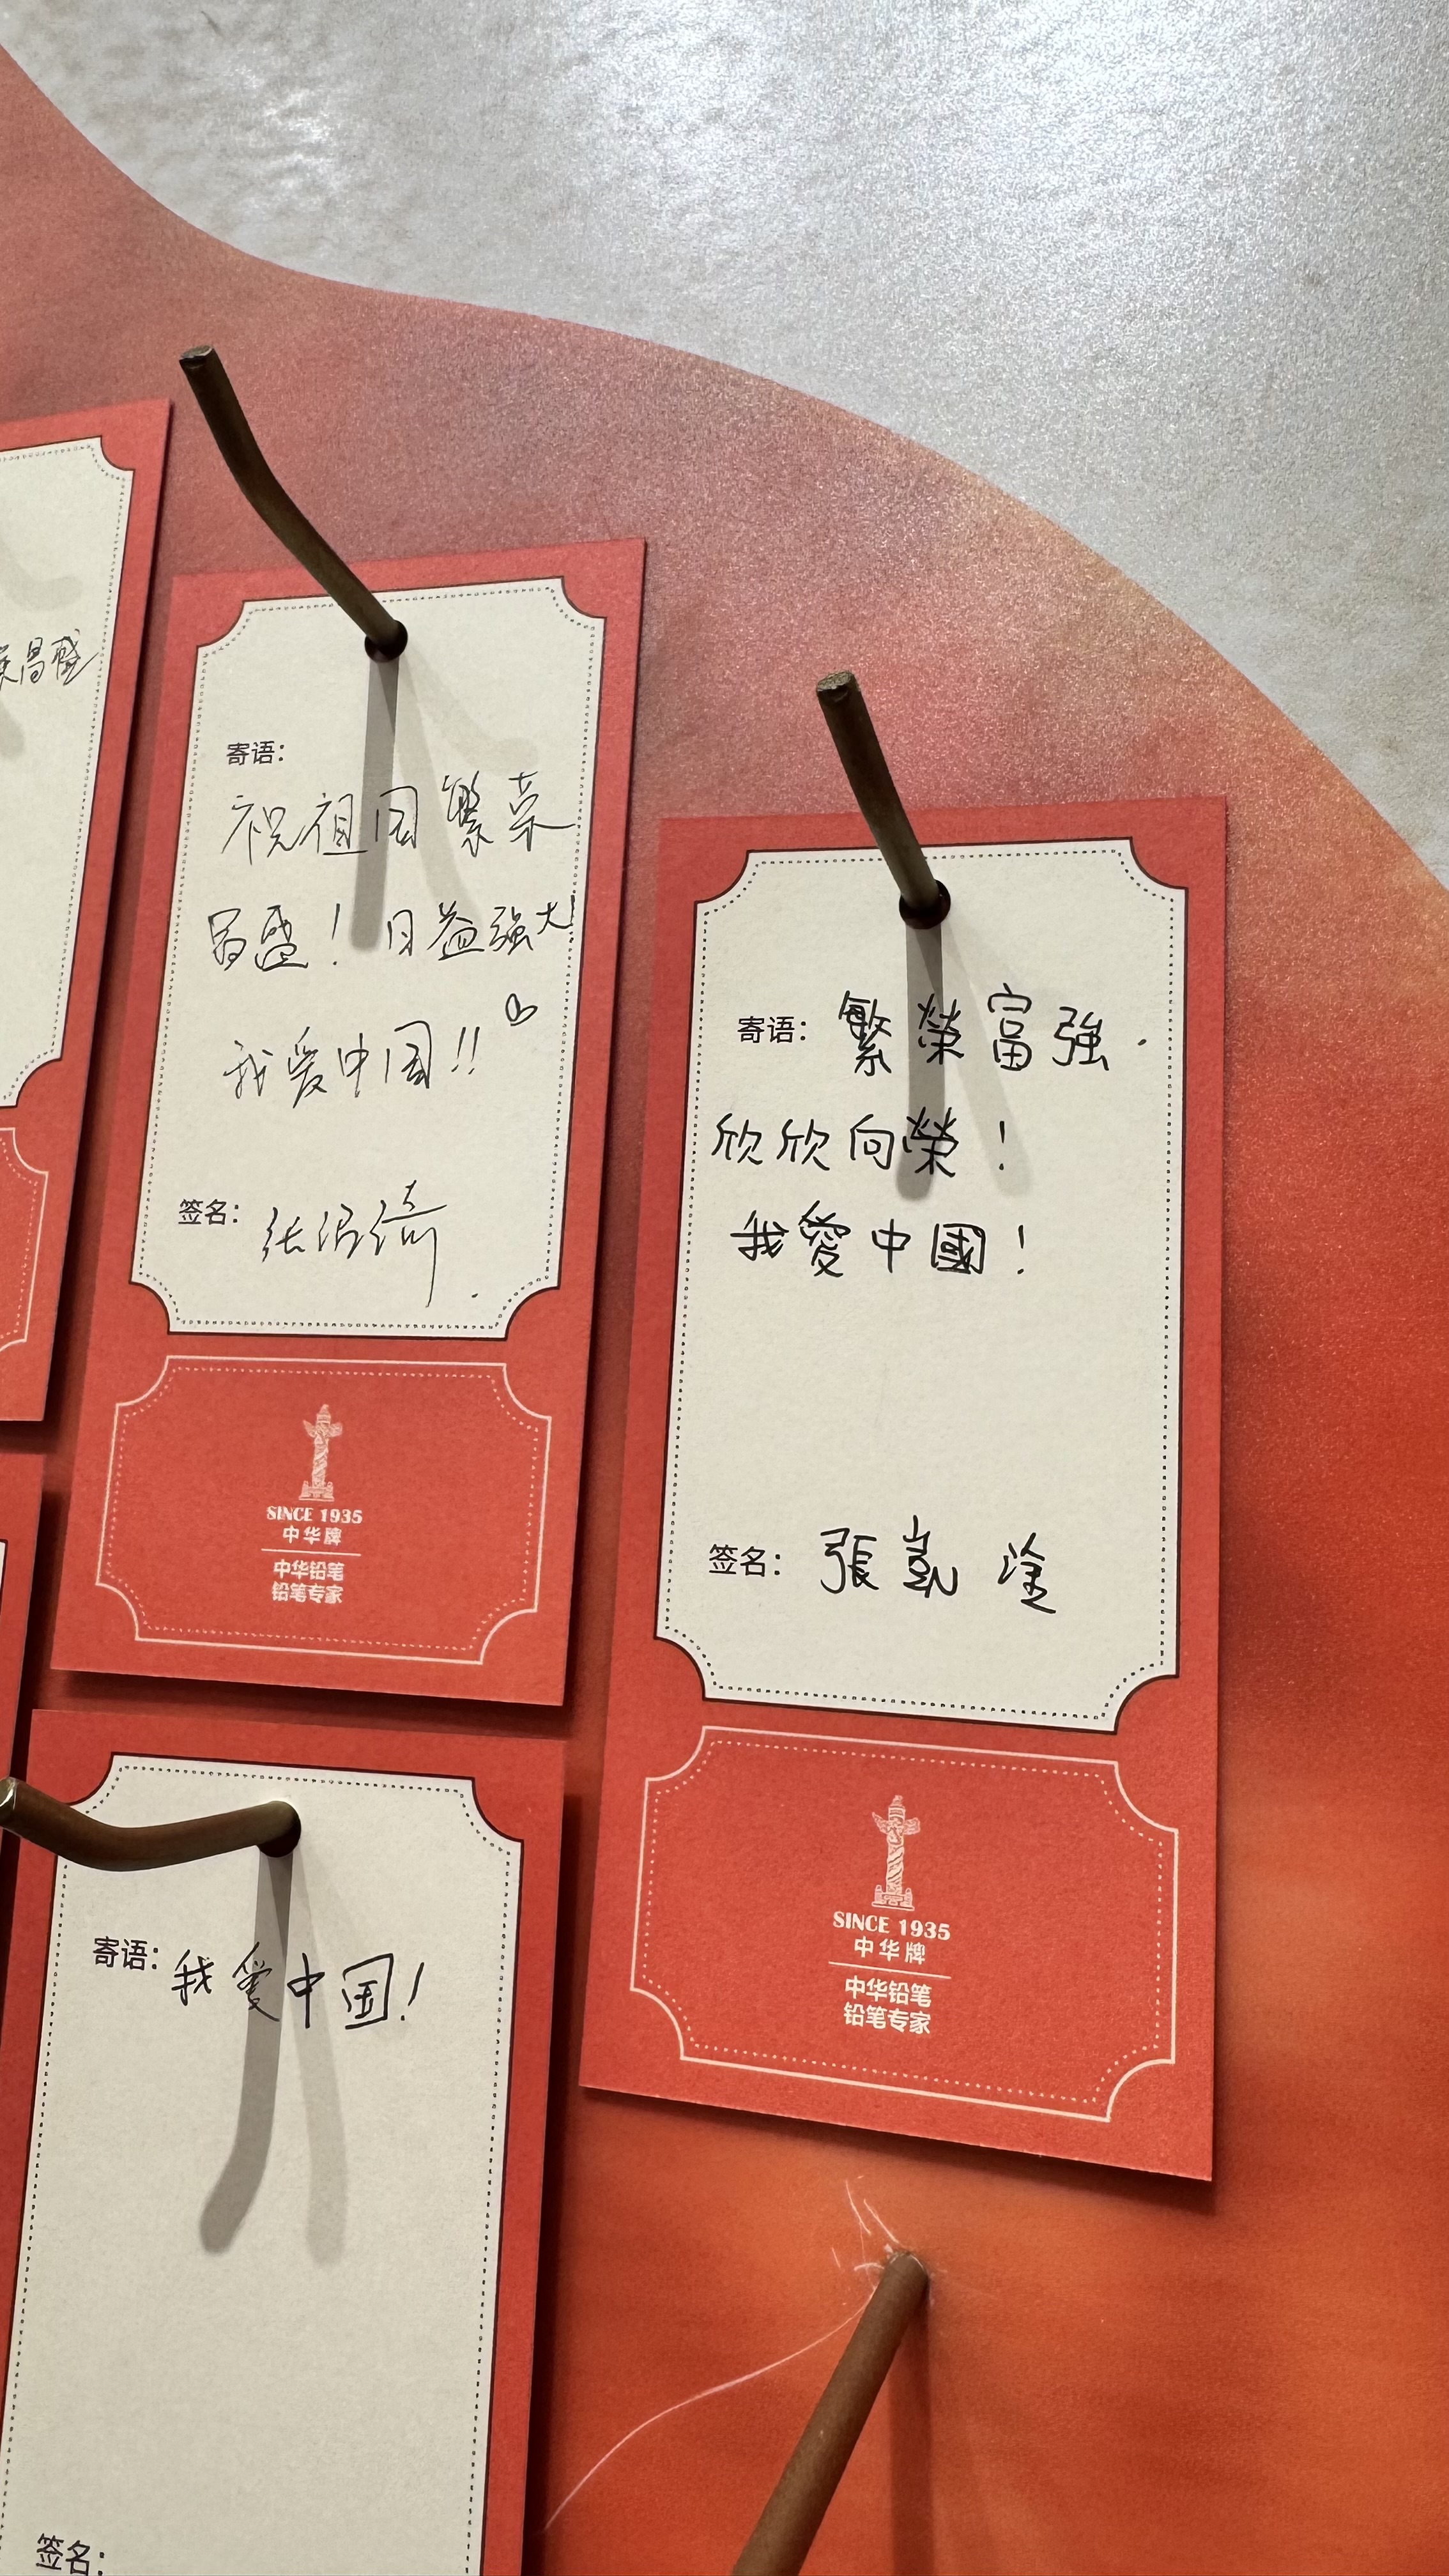 昌盛
寄语：
祝祖国繁荣
昌盛！日益强大
我爱中国!!
签名：张
SINCE 1935
中华牌
中华铅笔
铅笔专家
寄语：繁榮富強.
欣欣向榮！
我愛中國！
签名：張凱
SINCE 1935
中华牌
中华铅笔
铅笔专家
寄语：我爱中国！
签名：